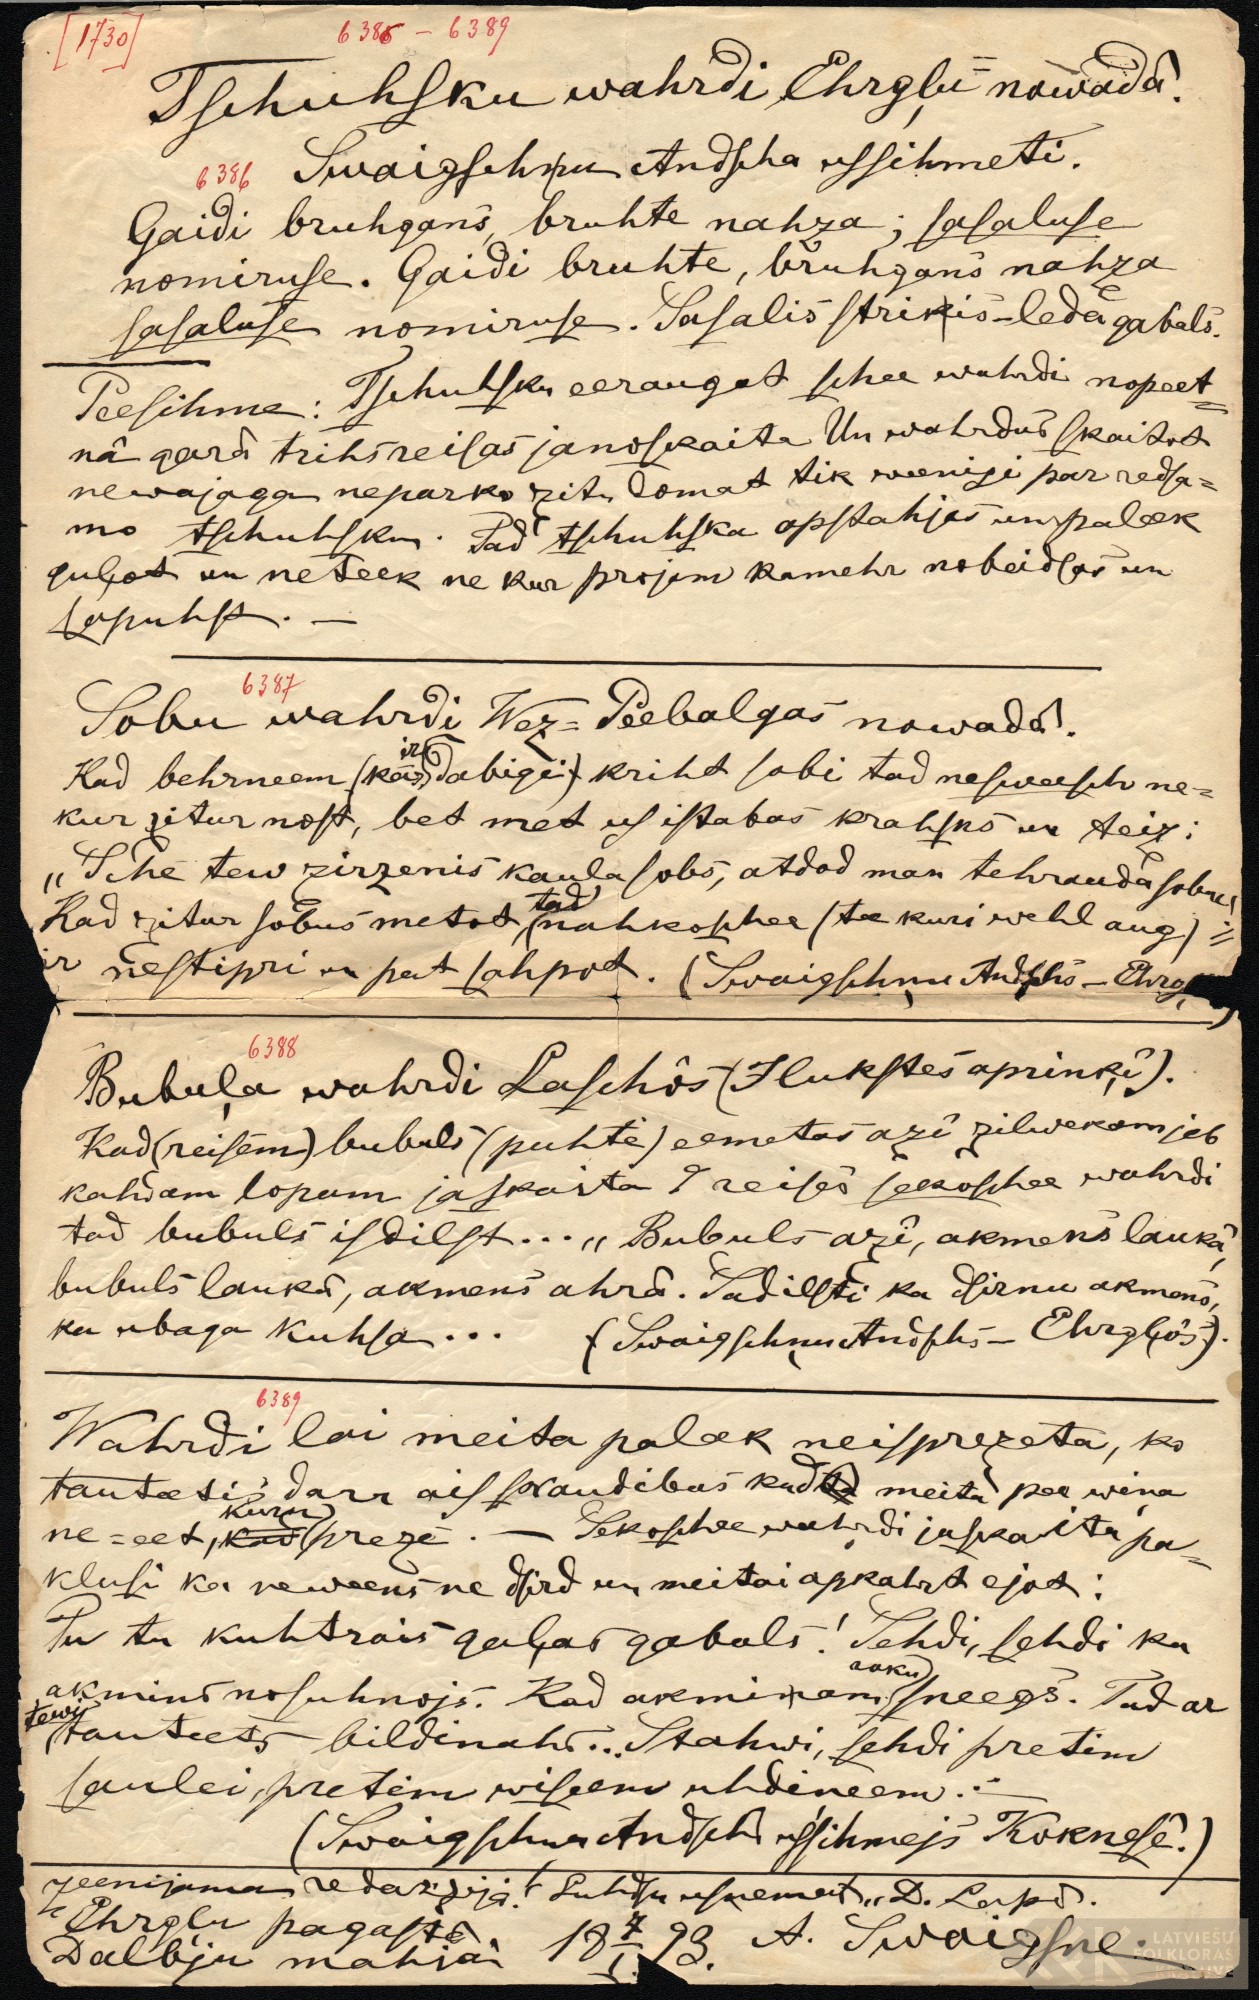 [1730]
6386 – 6389
Tschuhsku wahrdi Ehrgļu nowadâ.
6386 Swaigschņu Andscha ussihmeti.
Gaidi bruhgans, bruhte nahza; sasaluse
nomiruse. Gaidi bruhte, bruhgans nahza
sasaluse nomiruse. Sasalis strikis – leda gabals.
Peesihme: Tschuhsku eeraugot schee wahrdi nopeet=
nâ garâ trihsreisas janoskaita Un wahrdus skaitot
newajaga neparko zitu domat tik weenigi par redsa=
mo tschuhsku. Tad tschuhska apstahjas un paleek
guļot un neteek ne kur projam kamehr nobeidsas un
sapuhst. —
6387
Sobu wahrdi Wez=Peebalgas nowadâ.
Kad behrneem (kas ir dabigi) kriht sobi tad nesweesch ne=
kur zitur nost, bet met us istabas krahsns un teiz:
„Sche tew zirzenis kaula sobs, atdod man tehrauda sobu!
Kad zitur sobus metot, tad nahkoschee (tee kuri wehl aug) =
ir nestipri un pat sahpot. (Swaigschņu Andschs – Ehrg
6388
Bubuļa wahrdi Laschôs (Ilukstes aprinķî).
Kad (reisem) bubuls (puhte) eemetas azî zilwekam jeb
kahdam lopam jaskaita 9 reises seekoschee wahrdi
tad bubuls isdilst... „Bubuls azî, akmens laukâ,
bubuls laukâ, akmens ahrâ. Sadilsti ka dsirnu akmens,
ka ubaga kuhsa... (Swaigschņu Andschs – Ehrgļôs).
6389
Wahrdi lai meita paleek neisprezeta, ko
tauteesi darr ais skaudibas kad meita pee wiņa
ne=eet, kuru prezê. — Sekoschee wahrdi jaskaita pa=
klusi ka neweens ne dsird un meitai apkahrt ejot:
Tu tu kuhtrais gaļas gabals! Sehdi, sehdi ka
akmins nosuhnojs. Kad akminam roku sneegs. Tad ar
tewi tauteets bildinahs... Stahwi, sehdi pretim
saulei, pretim wiseem uhdineem. —
(Swaigschņu Andschs ussihmejs Koknesê.)
zeenijama redakzija! Luhdsu usņemat „D. Lapâ.
Ehrgļu pagastâ.
Dalbju mahjâ 18 7/I 93. A. Swaigsne.
LATVIEŠU
FOLKLORAS
KRĀTUVE